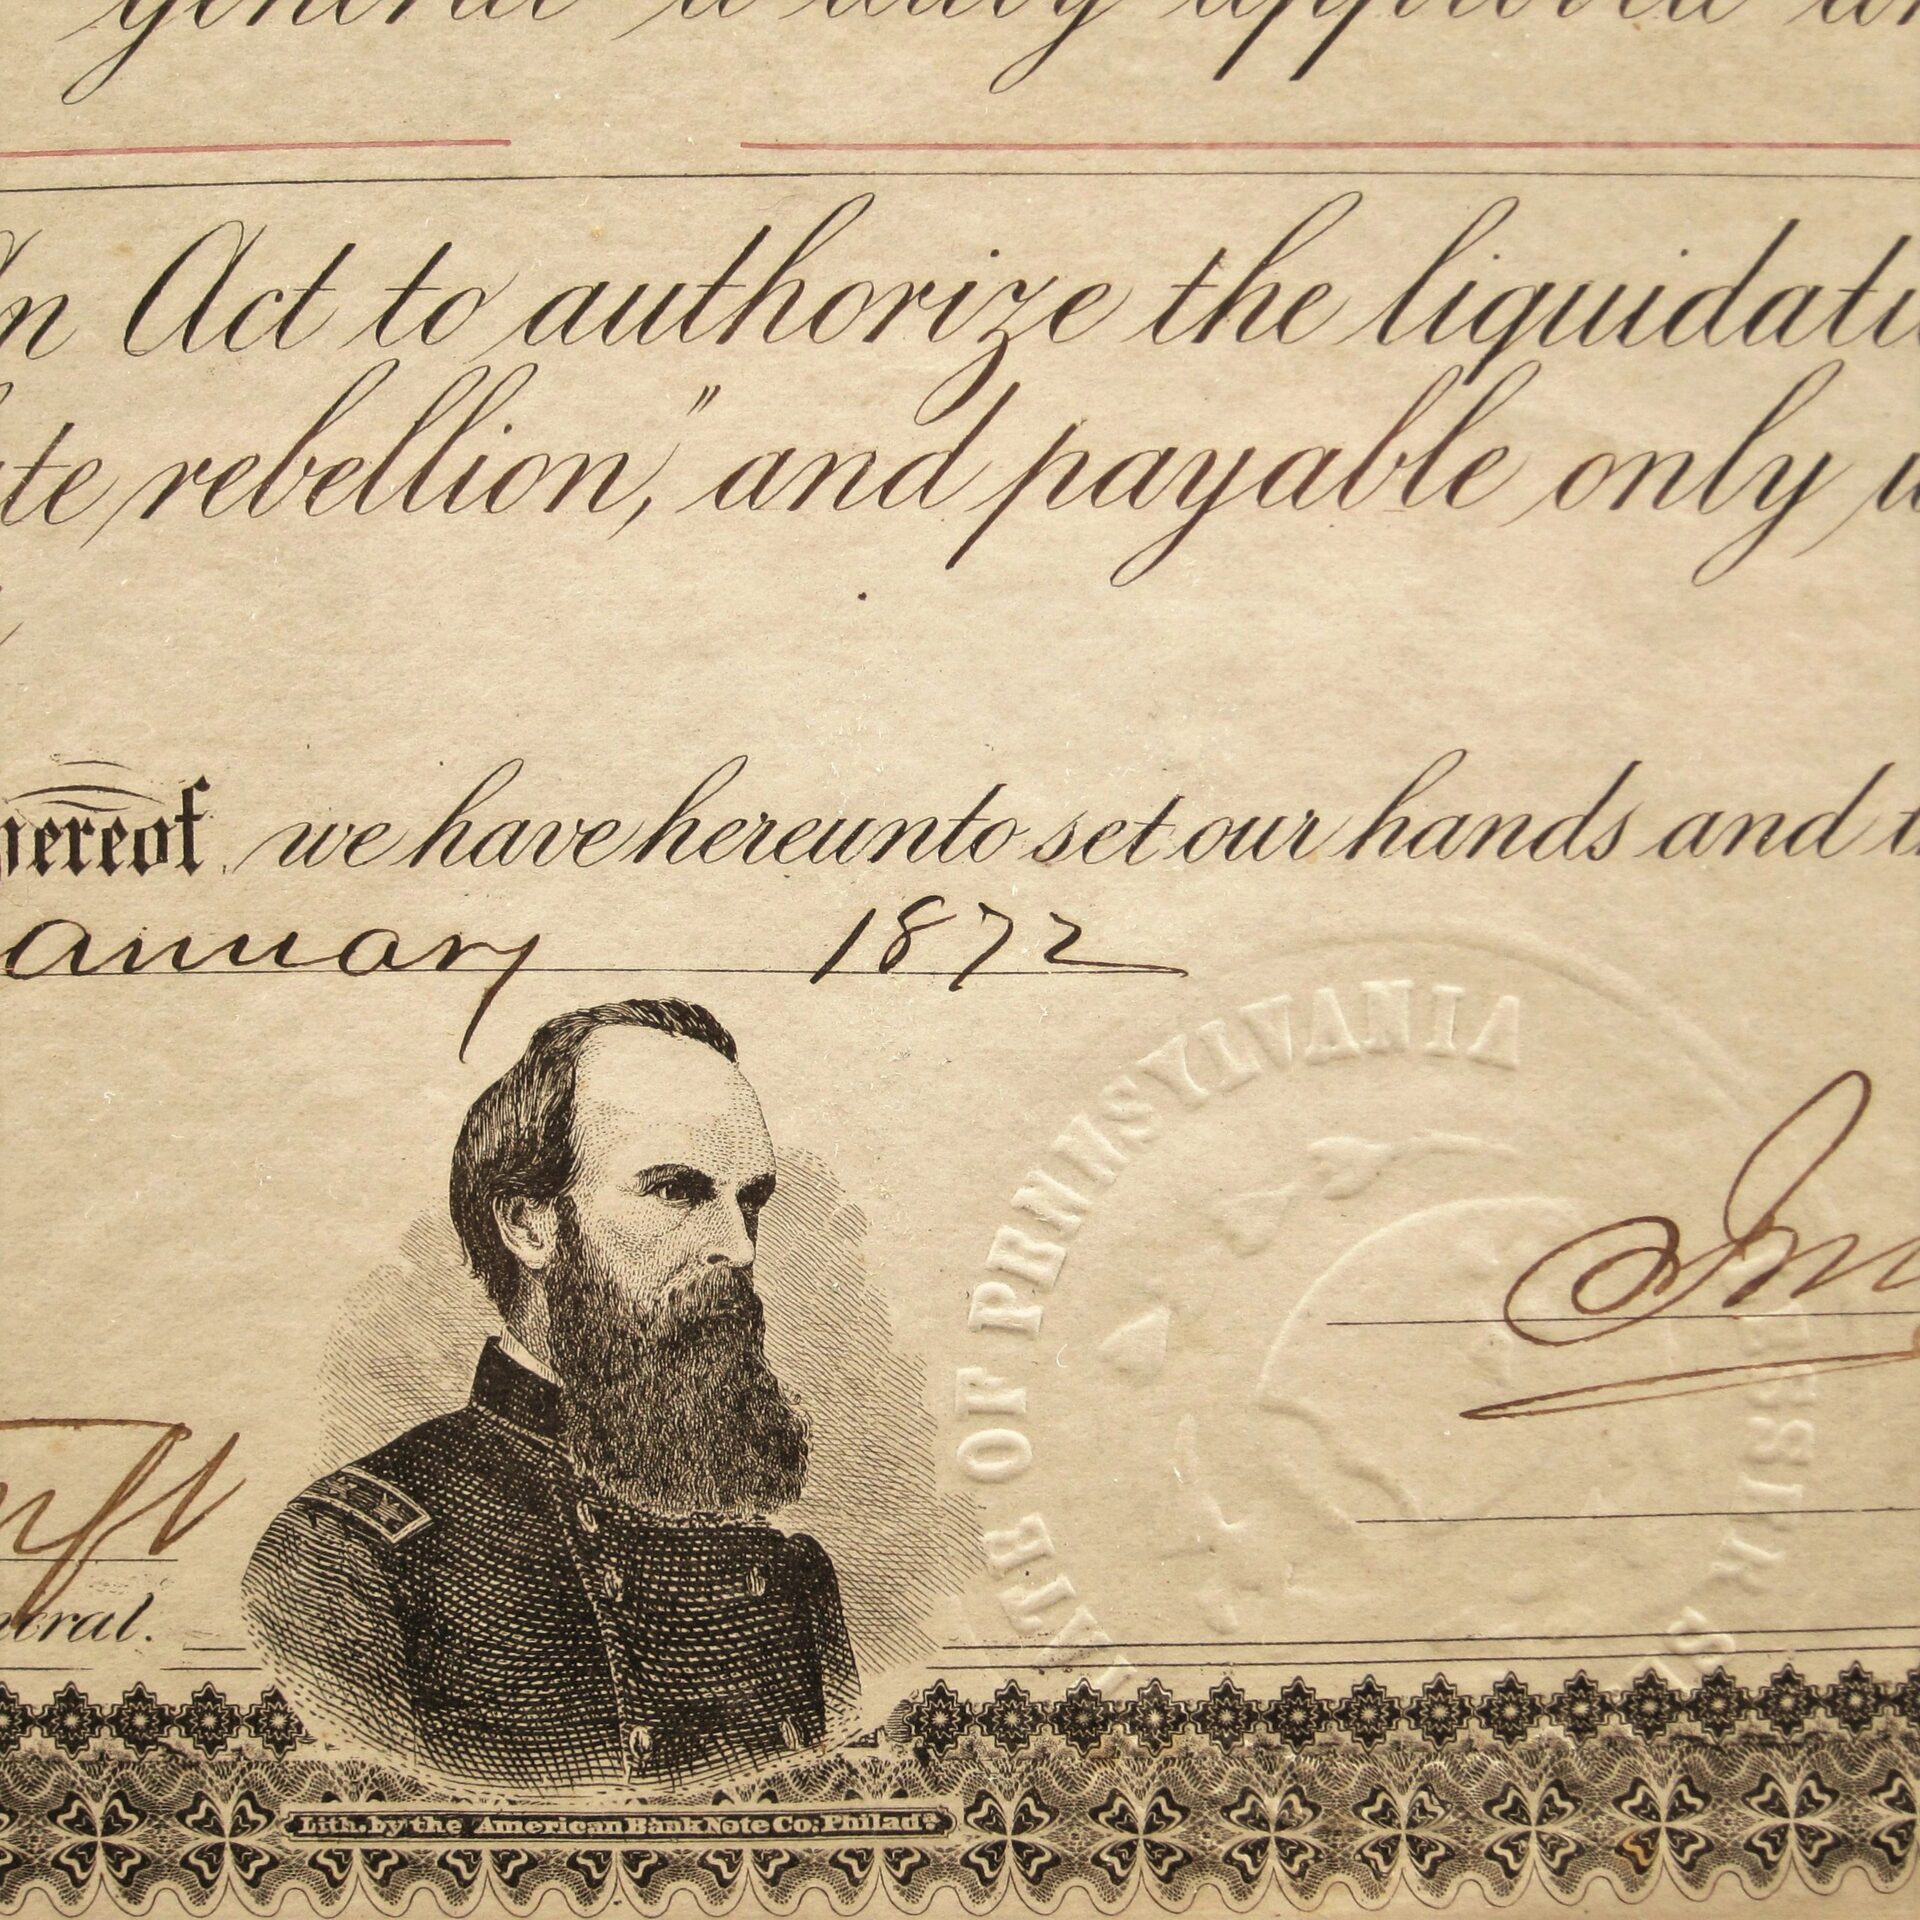 general is duly approved
An Act to authorize the liquidati
te rebellion," and payable only
hereof we have hereunto set our hands and t
anuary 1872
STATE OF PENNSYLVANIA
neral.
Lith. by the American Bank Note Co: Philada.